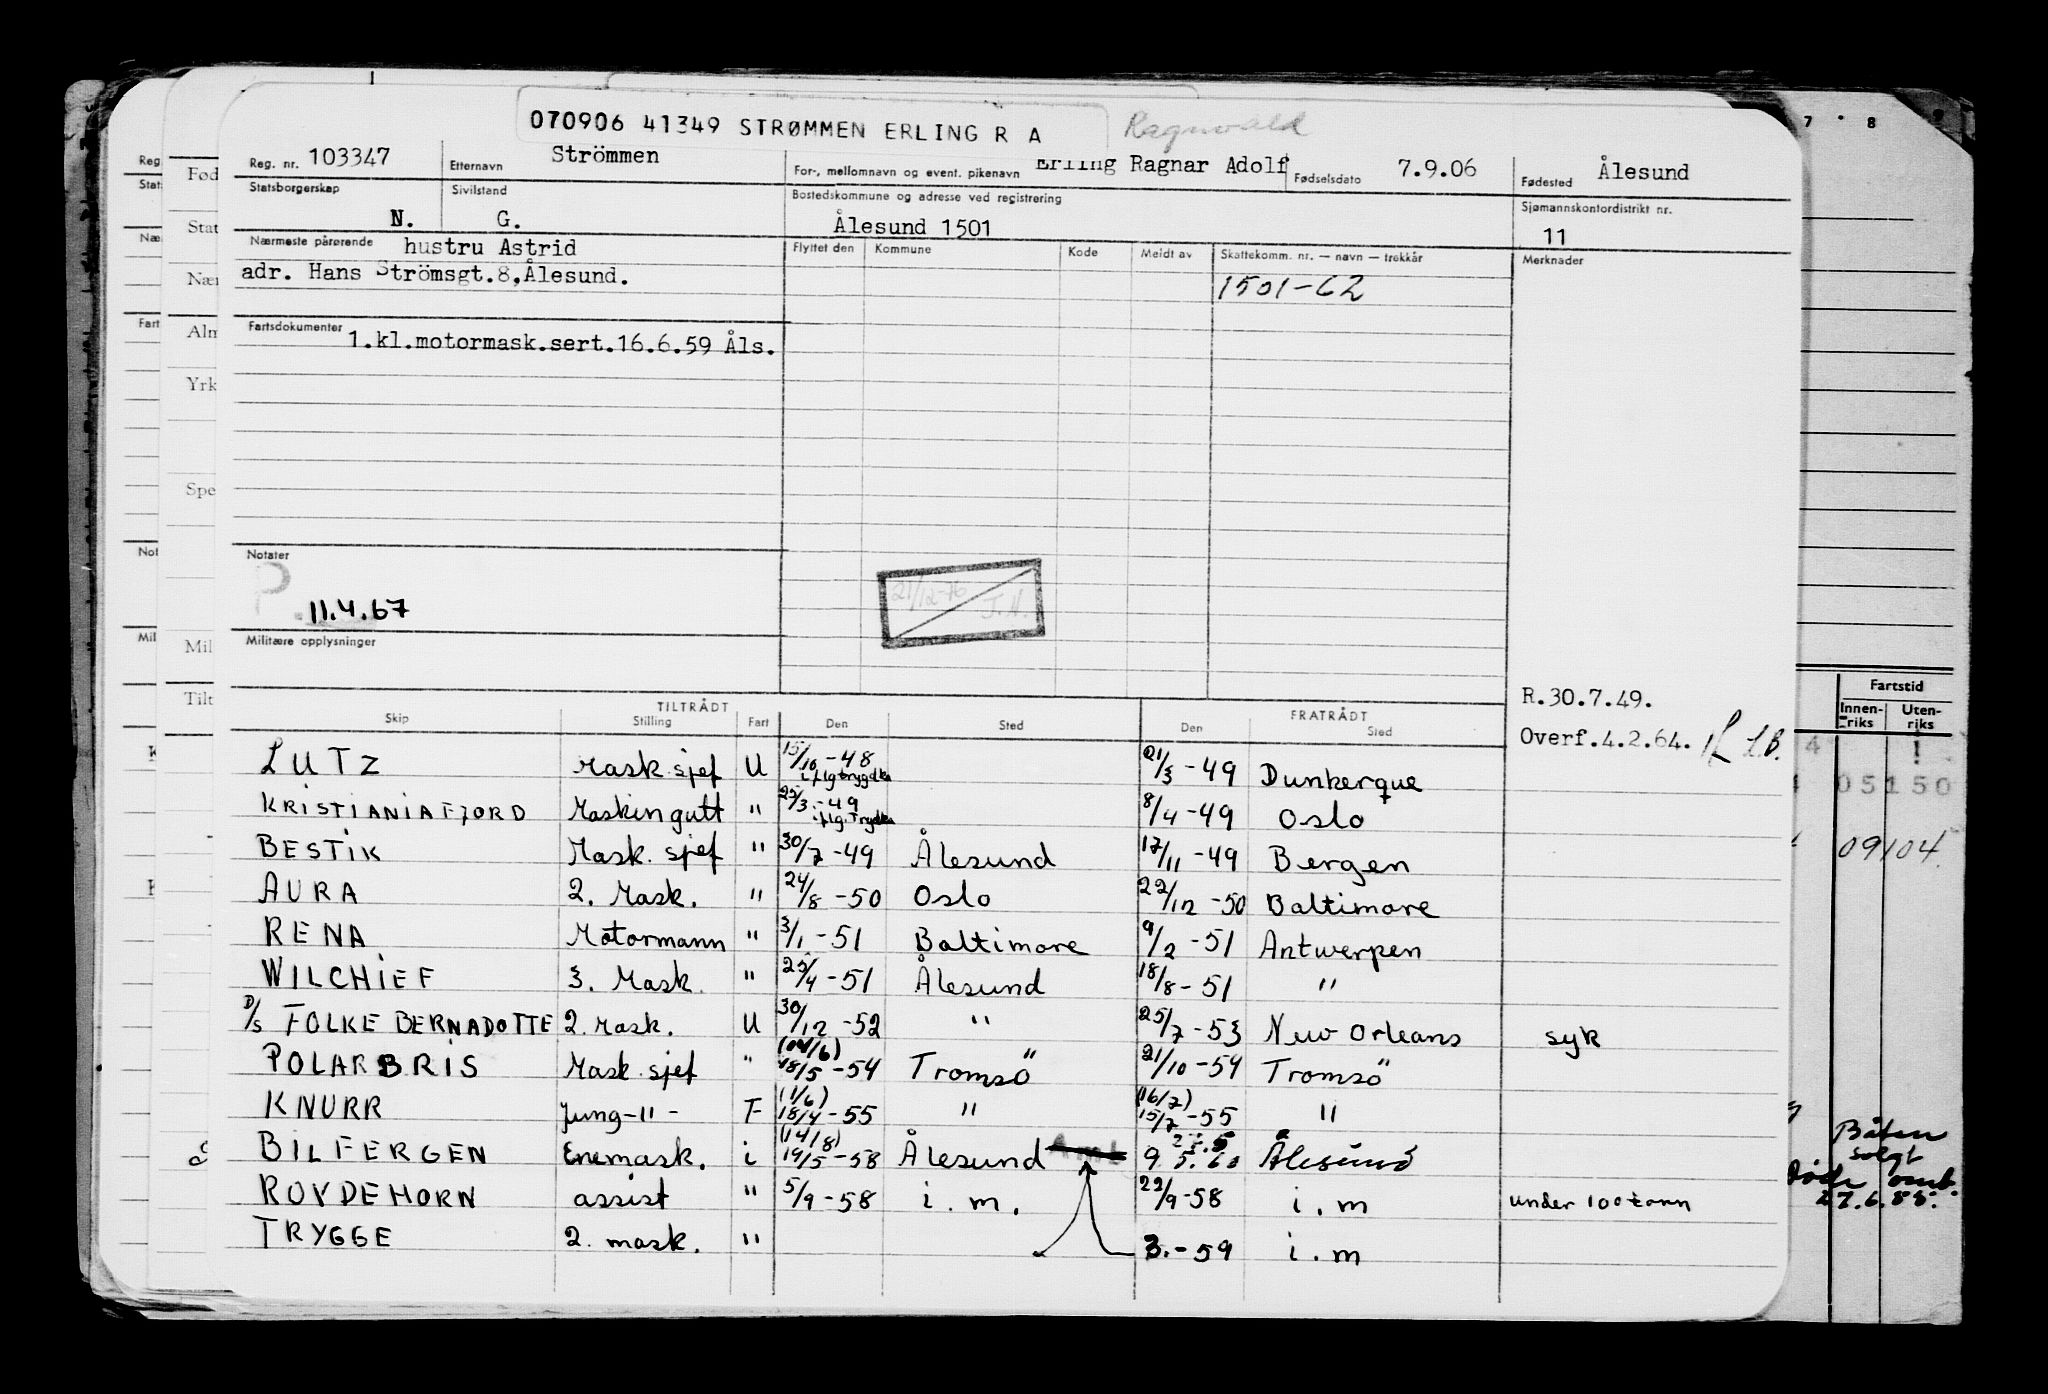 070906 41349 STRØMMEN ERLING R A Ragnvald
Reg. nr. 103347 Etternavn Strömmen For-, mellomnavn og event. pikenavn Erling Ragnar Adolf Fødselsdato 7.9.06 Fødested Ålesund
Statsborgerskap N. Sivilstand G. Bostedskommune og adresse ved registrering Ålesund 1501 Sjømannskontordistrikt nr. 11
Nærmeste pårørende hustru Astrid Flyttet den Kommune Kode Meldt av Skattekomm. nr. — navn — trekkår Merknader
adr. Hans Strömsgt.8,Ålesund. 1501-62
Fartsdokumenter 1.kl.motormask.sert.16.6.59 Åls.
Notater
P. 11.4.67
21/12-76 J.H.
Militære opplysninger
R.30.7.49.
Overf.4.2.64.
TILTRÅDT FRATRÅDT
Skip Stilling Fart Den Sted Den Sted
LUTZ Mask sjef U 15/10-48 i flg trygdka 21/3-49 Dunkerque
KRISTIANIAFJORD Maskingutt " 25/3-49 i flg. Trydka 8/4-49 Oslo
BESTIK Mask. sjef " 30/7-49 Ålesund 17/11-49 Bergen
AURA 2. Mask. " 24/8-50 Oslo 22/12-50 Baltimore
RENA Motormann " 3/1-51 Baltimore 9/2-51 Antwerpen
WILCHIEF 3. Mask. " 25/4-51 Ålesund 18/8-51 "
D/S FOLKE BERNADOTTE 2. Mask. U 30/12-52 " 25/7-53 New Orleans syk
POLARBRIS Mask sjef " 18/5-54 Tromsö 21/10-54 Tromsö
KNURR Jung-11- F (11/6) 18/4-55 " (16/7) 15/7-55 "
BILFERGEN Enemask. i (14/8) 19/5-58 Ålesund 9.5.60 Ålesund
ROVDEHORN assist " 5/9-58 i.m. 22/9-58 i.m under 100 tonn
TRYGGE 2. mask. " 3.-59 i.m
7 8 9
Fartstid
Innenriks Utenriks
05150
09104
Båten
solgt
27.6.85.
Reg
Stat
Næ
Fart
Not
Mil
Fød
Stat
Nær
Alm
Yrk
Spe
Mil
Tilt